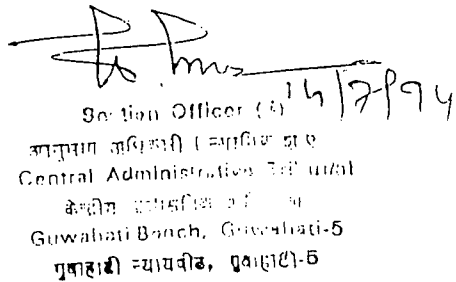 14/7/94
Section Officer (J)
अनुभाग अधिकारी ( न्यायिक
Central Administrative Tribunal
केन्द्रीय
Guwahati Bench, Guwahati-5
गुवाहाटी न्यायपीठ, गुवाहाटी-5